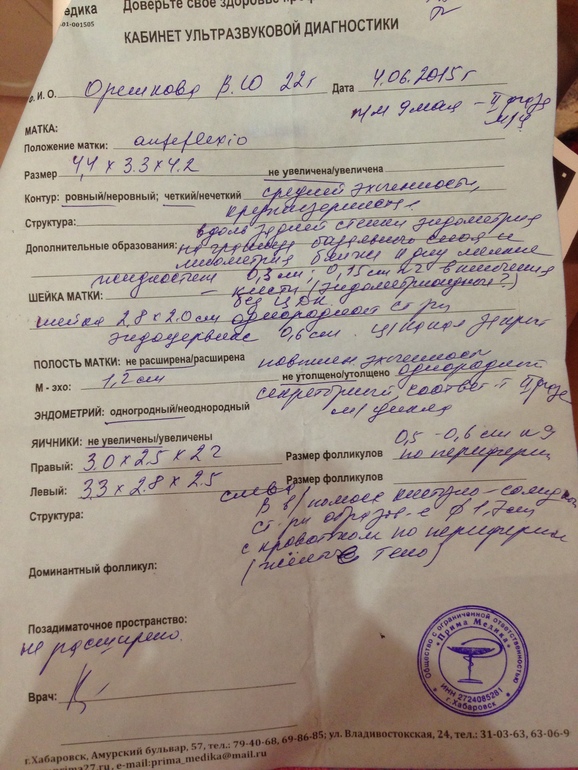 едика Доверьте свое здоровье
-01-001505
КАБИНЕТ УЛЬТРАЗВУКОВОЙ ДИАГНОСТИКИ
.О. И. О. Орешкова В.Ю 22г Дата 4.06.2015г
п/м 9 мая – II фаза
м/ц
МАТКА:
Положение матки: anteflexio
Размер 4,4 х 3.3 х 4.2 не увеличена/увеличена
Контур: ровный/неровный; четкий/нечеткий средней эхогенности,
Структура:
вдоль задней стенки эндометрия
Дополнительные образования: на границе базального слоя и
миометрия ближе к дну мелкие
жидкостные 0,3 см; 0,15 см включения
ШЕЙКА МАТКИ: – кисты (эндометриоидные?)
без ЦДК.
шейка 2,8 х 2.0 см однородной ст-ры
эндоцервикс 0,6 см. ц/канал закрыт
ПОЛОСТЬ МАТКИ: не расширена/расширена повышен эхогенности
М - эхо: 1,2 см не утолщено/утолщено однородный
секреторный соответ-т II фазе
ЭНДОМЕТРИЙ: одногродный/неоднородный м/цикла
ЯИЧНИКИ: не увеличены/увеличены
Правый: 3.0 х 2.5 х 2.2 Размер фолликулов 0,5 - 0,6 см
по периферии
Левый: 3.3 х 2.8 х 2.5 Размер фолликулов
слева
Структура: В в/полюсе кистозно-солидн
ст-ры образов-е ф 1,7 см
с кровотоком по периферии
Доминантный фолликул: (желтое тело)
Позадиматочное пространство:
не расширено.
Врач:
Общество с ограниченной ответственностью
"Прима Медика"
ИНН 2724085281
г.Хабаровск
г.Хабаровск, Амурский бульвар, 57, тел.: 79-40-68, 69-86-85; ул. Владивостокская, 24, тел.: 31-03-63, 63-06-9
prima27.ru, e-mail:prima_medika@mail.ru